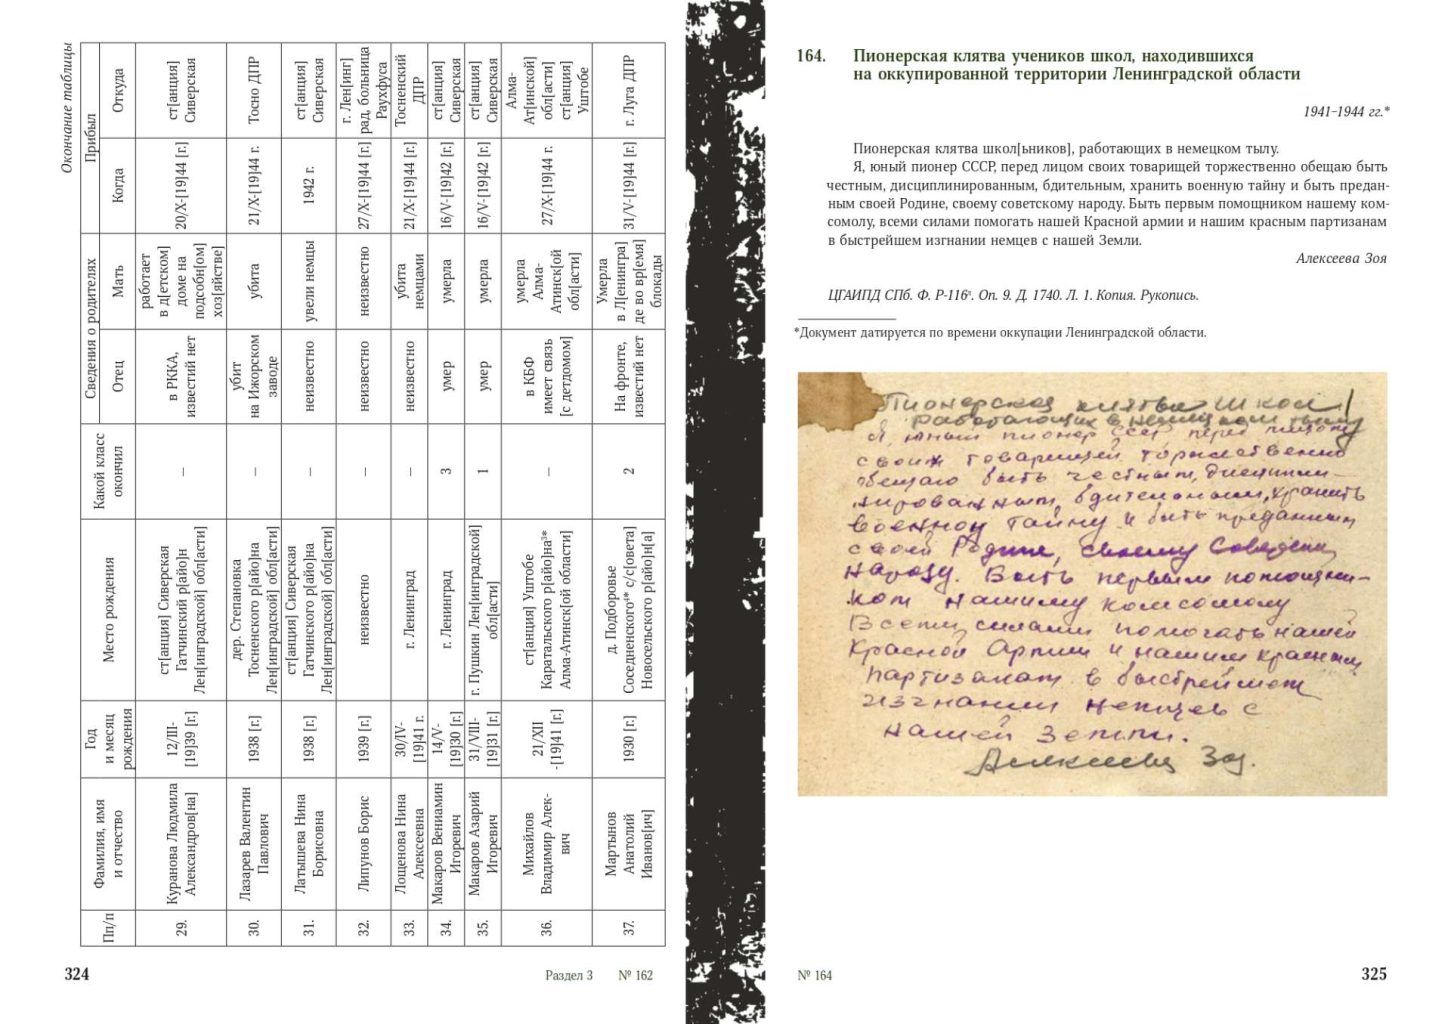 Окончание таблицы
Пп/п
Фамилия, имя
и отчество
Год
и месяц
рождения
Место рождения
Какой класс
окончил
Сведения о родителях
Отец
Мать
Прибыл
Когда
Откуда
29.
Куранова Людмила
Александров[на]
12/III-
[19]39 [г.]
ст[анция] Сиверская
Гатчинский р[айо]н
Лен[инградской] обл[асти]
—
в РККА,
известий нет
работает
в д[етском]
доме на
подсобн[ом]
хоз[яйстве]
20/X-[19]44 [г.]
ст[анция]
Сиверская
30.
Лазарев Валентин
Павлович
1938 [г.]
дер. Степановка
Тосненского р[айо]на
Лен[инградской] обл[асти]
—
убит
на Ижорском
заводе
убита
21/X-[19]44 г.
Тосно ДПР
31.
Латышева Нина
Борисовна
1938 [г.]
ст[анция] Сиверская
Гатчинского р[айо]на
Лен[инградской] обл[асти]
—
неизвестно
увели немцы
1942 г.
ст[анция]
Сиверская
32.
Липунов Борис
1939 [г.]
неизвестно
—
неизвестно
неизвестно
27/X-[19]44 [г.]
г. Лен[инг]
рад, больница
Раухфуса
33.
Лощенова Нина
Алексеевна
30/IV-
[19]41 г.
г. Ленинград
—
неизвестно
убита
немцами
21/X-[19]44 [г.]
Тосненский
ДПР
34.
Макаров Вениамин
Игоревич
14/V-
[19]30 [г.]
г. Ленинград
3
умер
умерла
16/V-[19]42 [г.]
ст[анция]
Сиверская
35.
Макаров Азарий
Игоревич
31/VIII-
[19]31 [г.]
г. Пушкин Лен[инградской]
обл[асти]
1
умер
умерла
16/V-[19]42 [г.]
ст[анция]
Сиверская
36.
Михайлов
Владимир Алек-
вич
21/XII
-[19]41 [г.]
ст[анция] Уштобе
Каратальского р[айо]на³*
Алма-Атинск[ой области]
—
в КБФ
имеет связь
[с детдомом]
умерла
Алма-
Атинск[ой
обл[асти]
27/X-[19]44 г.
Алма-
Ат[инской]
обл[асти]
ст[анция]
Уштобе
37.
Мартынов
Анатолий
Иванов[ич]
1930 [г.]
д. Подборовье
Соседненского⁴* с/с[овета]
Новосельского р[айо]н[а]
2
На фронте,
известий нет
Умерла
в Л[енингра]
де во вр[емя]
блокады
31/V-[19]44 [г.]
г. Луга ДПР
324
Раздел 3 № 162
164. Пионерская клятва учеников школ, находившихся
на оккупированной территории Ленинградской области
1941–1944 гг.*
Пионерская клятва школ[ьников], работающих в немецком тылу.
Я, юный пионер СССР, перед лицом своих товарищей торжественно обещаю быть
честным, дисциплинированным, бдительным, хранить военную тайну и быть предан-
ным своей Родине, своему советскому народу. Быть первым помощником нашему ком-
сомолу, всеми силами помогать нашей Красной армии и нашим красным партизанам
в быстрейшем изгнании немцев с нашей Земли.
Алексеева Зоя
ЦГАИПД СПб. Ф. Р-116ᴸ. Оп. 9. Д. 1740. Л. 1. Копия. Рукопись.
*Документ датируется по времени оккупации Ленинградской области.
Пионерская клятва школ
работающих в немецком тылу
Я, юный пионер СССР перед лицом
своих товарищей торжественно
обещаю быть честным, дисципли-
нированным, бдительным, хранить
военную тайну и быть преданным
своей Родине, своему Советскому
народу. Быть первым помощни-
ком нашиму комсомолу
Всеми силами помогать нашей
Красной Армии и нашим красным
партизанам в быстрейшем
изгнании немцев с
нашей Земли.
Алексеева Зоя.
№ 164
325